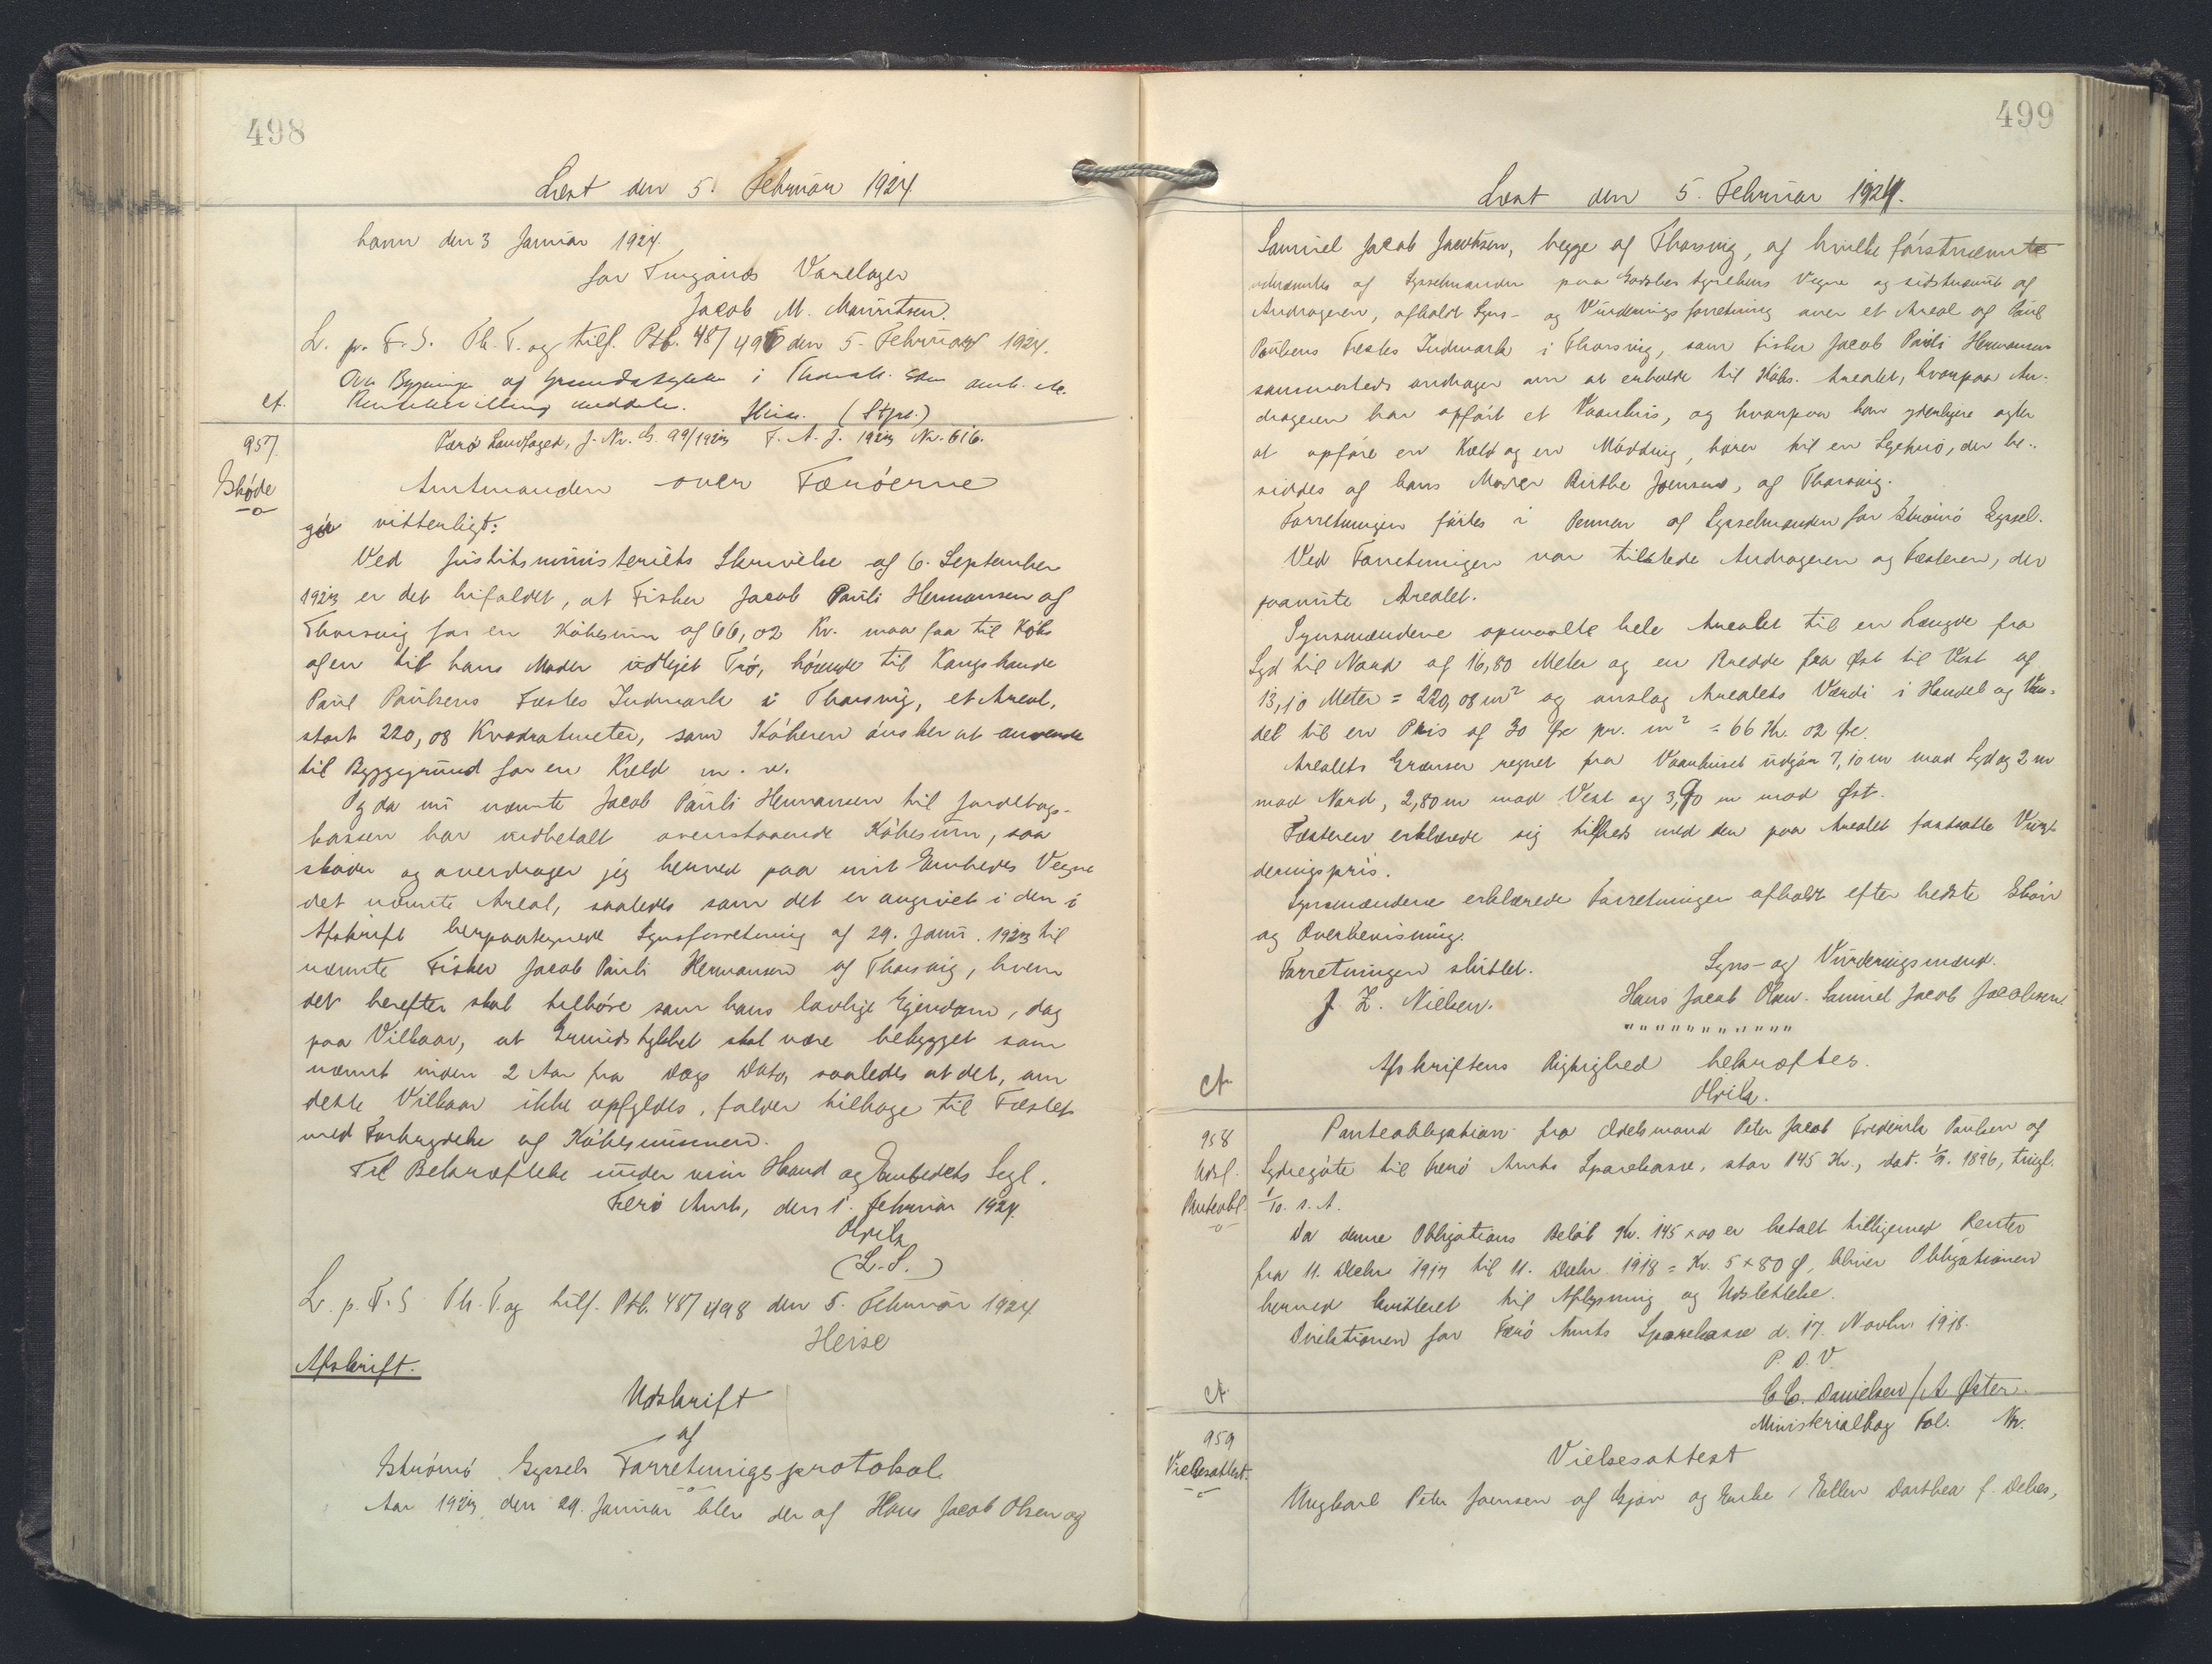 498
Læst den 5. Februar 1924
havn den 3 Januar 1924.
for Tingánes Varelager
Jacob M. Mauritsen.
L. p. F. S. Th. T. og tilf. Ptb. 48/496 den 5. Februar 1924.
Bygninger og Grundstykke i Thorsh.
Heise. (Stpr.)
ct.
957.
Skøde
Færø Landfoged, J. Nr. G. 99/1923 F. A. J. 1923 Nr. 616.
Amtmanden over Færöerne
gör vitterligt:
Ved Justitsministeriets Skrivelse af 6. September
1923 er det bifaldet, at Fisker Jacob Páuli Hermansen af
Thorsvig for en Köbesum af 66,02 Kr. maa faa til Köbs
af en til hans Moder udlejet Trö, hörende til Kongsbonde
Paul Paulsens Fæstes Indmark i Thorsvig, et Areal,
stort 220,08 Kvadratmeter, som Köberen önsker at anvende
til Byggegrund for en Kjeld m. v.
Og da nu nævnte Jacob Pauli Hermansen til Jordebogs-
kassen har indbetalt ovenstaaende Köbesum, saa
skøder og overdrager jeg herved paa mit Embedes Vegne
det nævnte Areal, saaledes som det er angivet i den i
Afskrift herpaategnede Synsforretning af 29. Janu. 1923 til
nævnte Fisker Jacob Pauli Hermansen af Thorsvig, hvem
det herefter skal tilhöre som hans lovlige Ejendom, dog
paa Vilkaar, at Grundstykket skal være bebygget som
nævnt inden 2 Aar fra Dags Dato, saaledes at det, om
dette Vilkaar ikke opfyldes, falder tilbage til Fæstet
med Fortabelse af Köbesummen.
Til Bekræftelse under min Haand og Embedets Segl.
Færö Amt, den 1. Februar 1924.
(L. S.)
L. p. F. S. Th. T. og tilf. Ptb. 48/498 den 5. Februar 1924
Heise
Afskrift.
Udskrift
af
Strömö Syssels Forretningsprotokol.
Aar 1923 den 29. Januar blev der af Hans Jacob Olsen og
499
Læst den 5. Februar 1924.
Samuel Jacob Jacobsen, begge af Thorsvig, af hvilke förstnævnte
udnævnts af Sysselmanden paa Godsbestyrelsens Vegne og sidstnævnt af
Andrageren, afholdt Syns- og Vurderingsforretning over et Areal af Paul
Paulsens Fæstes Indmark i Thorsvig, som Fisker Jacob Pauli Hermansen
sammesteds andrager om at erholde til Köbs. Arealet, hvorpaa An-
drageren har opfört et Vaanhus, og hvorpaa han yderligere agter
at opföre en Kjeld og en Mødding, hører til en Trö, der be-
siddes af hans Moder Birthe Joensen, af Thorsvig.
Forretningen förtes i Pennen af Sysselmanden for Strömö Syssel.
Ved Forretningen var tilstede Andrageren og Fæsteren, der
paaviste Arealet.
Synsmændene opmaalte hele Arealet til en Længde fra
Syd til Nord af 16,80 Meter og en Bredde fra Øst til Vest af
13,10 Meter = 220,08 m² og anslog Arealets Værdi i Handel og Van-
del til en Pris af 30 Øre pr. m² = 66 Kr. 02 Øre.
Arealets Grænser regnet fra Vaanhuset udgör 7,10 m mod Syd og 2 m
mod Nord, 2,80 m mod Vest og 3,90 m mod Øst.
Fæsteren erklærede sig tilfreds med den paa Arealet fastsatte Vur-
deringspris.
Synsmændene erklærede Forretningen afholdt efter bedste Skön
og Overbevisning.
Forretningen sluttet. Syns- og Vurderingsmænd.
J. Z. Nielsen. Hans Jacob Olsen. Samuel Jacob Jacobsen
" " " " " " " " " " " "
Afskriftens Rigtighed bekræftes.
ct
958
Udsl.
Panteobl.
Panteobligation fra Odelsmand Peter Jacob Frederik Poulsen af
Sydregöte til Færö Amts Sparekasse, stor 145 Kr., dat. 1/9. 1896, tingl.
1/10. s. A.
Da denne Obligations Belöb Kr. 145 × 00 er betalt tilligemed Renter
fra 11. Decbr. 1917 til 11. Decbr. 1918 = Kr. 5 × 80 Ø, bliver Obligationen
herved kvitteret til Aflysning og Udslettelse.
Direktionen for Færö Amts Sparekasse d. 17. Novbr. 1918.
P. D. V.
C. C. Danielsen / A. Öster
ct
959
Vielsesattest.
Ministerialbog Fol. Nr.
Vielsesattest
Ungkarl Peter Joensen af Gjov og Enke Ellen Dorthea f.